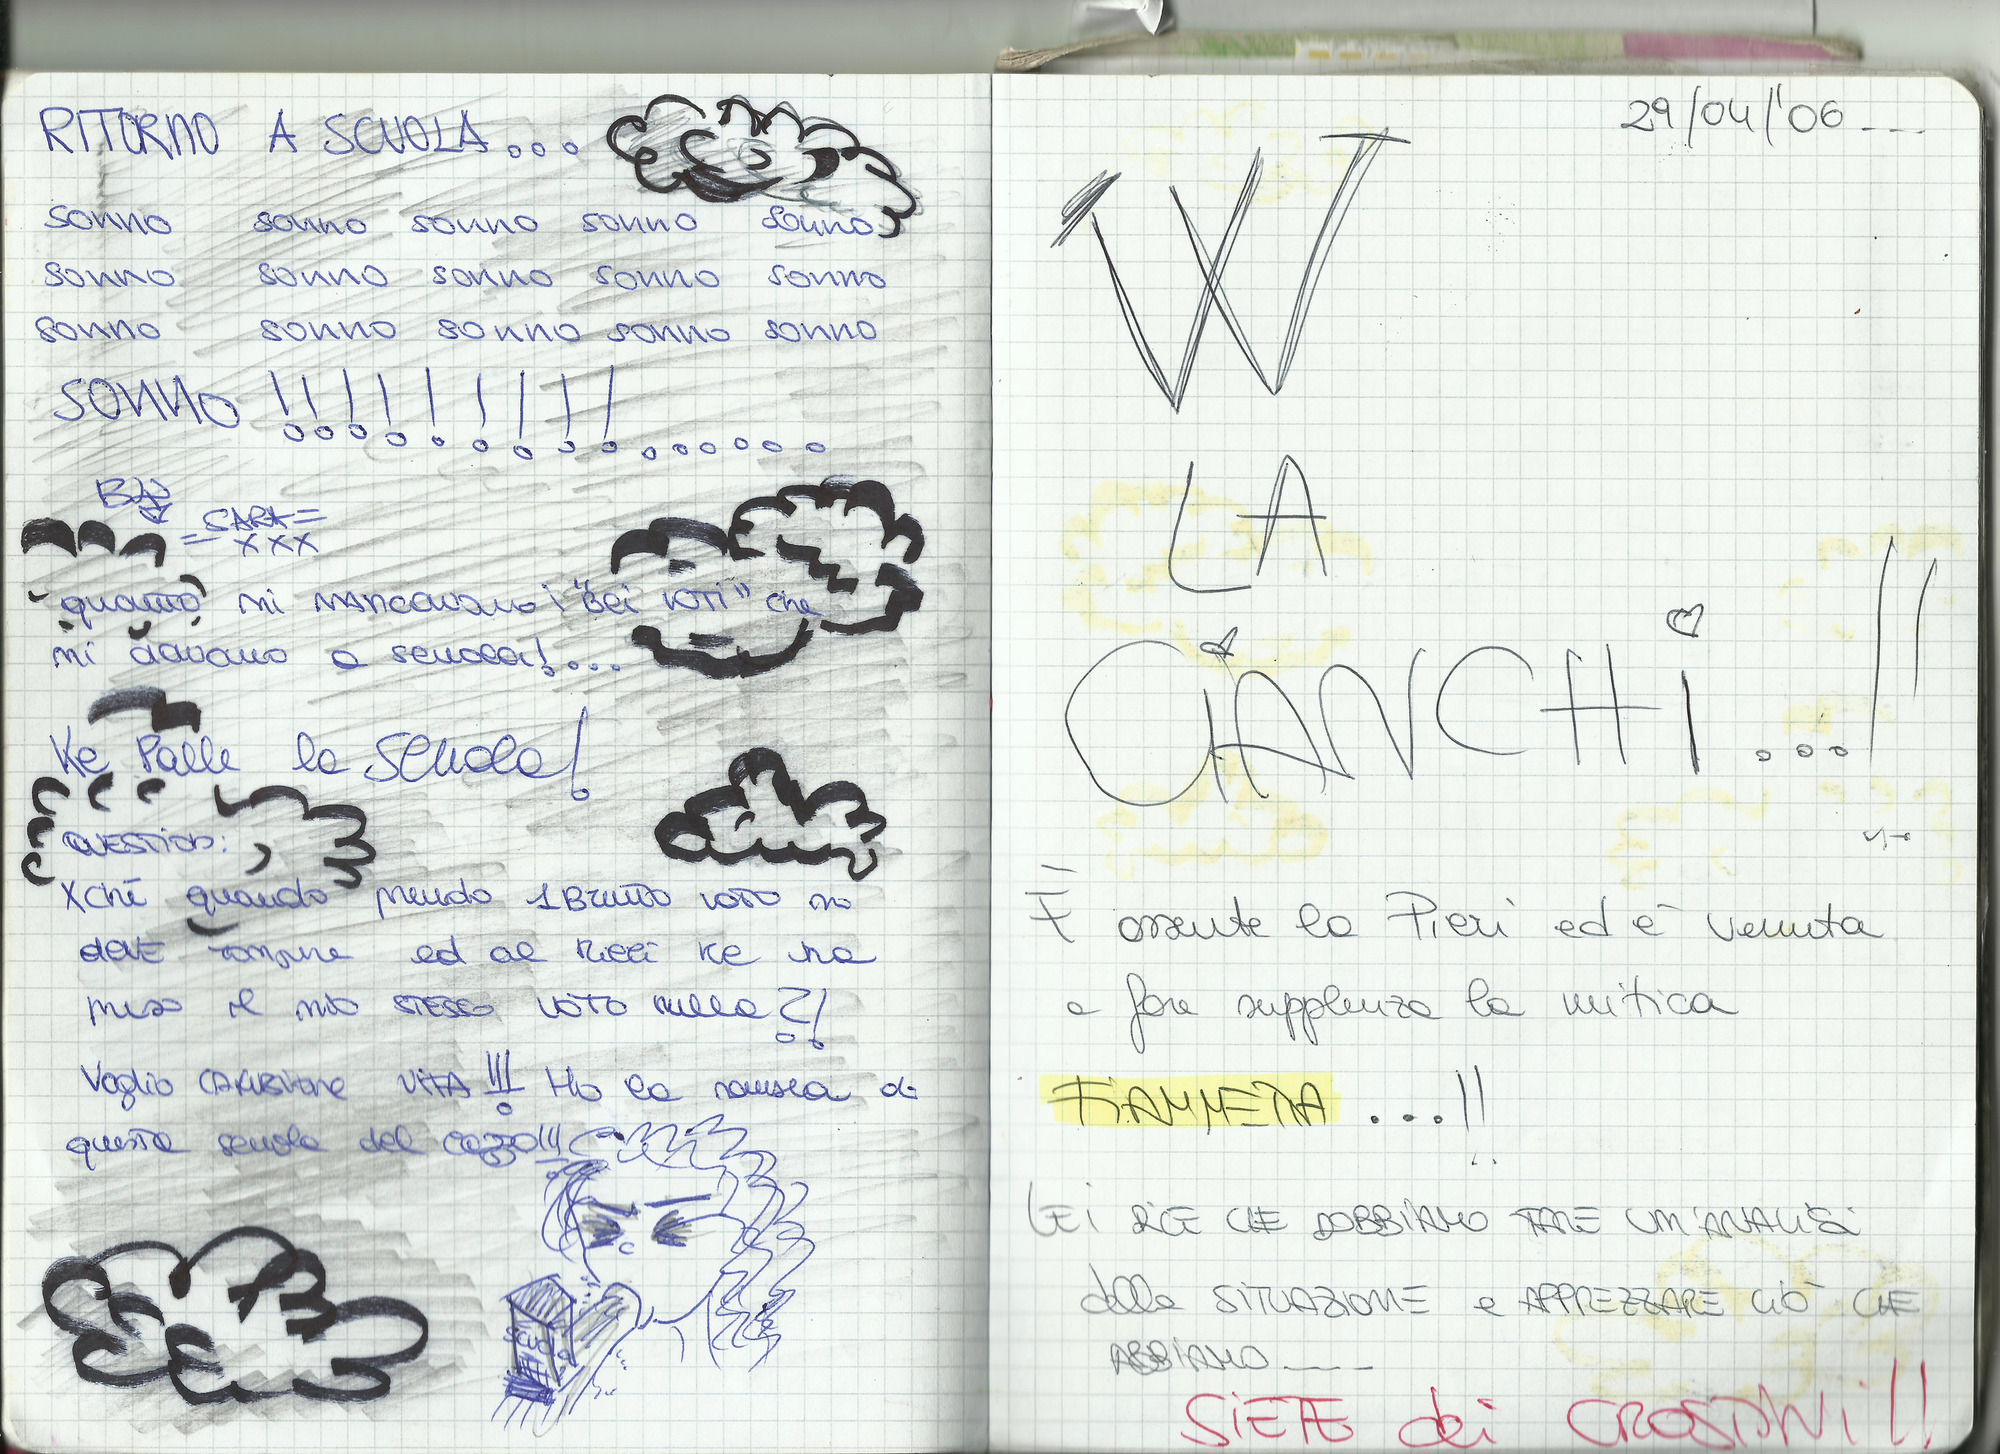 RITORNO A SCUOLA...
sonno sonno sonno sonno sonno
sonno sonno sonno sonno sonno
sonno sonno sonno sonno sonno
SONNO !!!!!!!!!......
= SARA =
XXX
quanto mi mancavano i "BEI VOTI" che
mi davano a scuola!...
Ke Palle la Scuola!
QUESTION:
Xchè quando prendo 1 BRUTTO VOTO mi
DEVE rompere ed al Ricci KE ha
preso il mio STESSO VOTO nulla?!
Voglio CAMBIARE VITA!!! Ho la nausea di
questa scuola del cazzo!!!
SCUOLA
29/04/'06...
W
LA
CIANCHI...!!
È assente la Pieri ed è venuta
a fare supplenza la mitica
FIAMMETTA...!!
LEI DICE CHE DOBBIAMO FARE UN'ANALISI
della SITUAZIONE e APPREZZARE CIÒ CHE
ABBIAMO....
SIETE dei CROSTINI!!